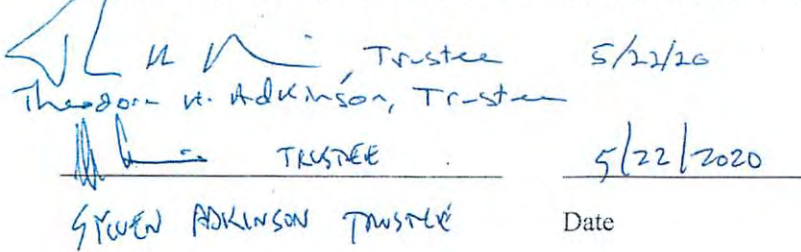 , Trustee 5/22/20
Theodore H. Adkinson, Trustee
TRUSTEE 5/22/2020
STEVEN ADKINSON TRUSTEE Date